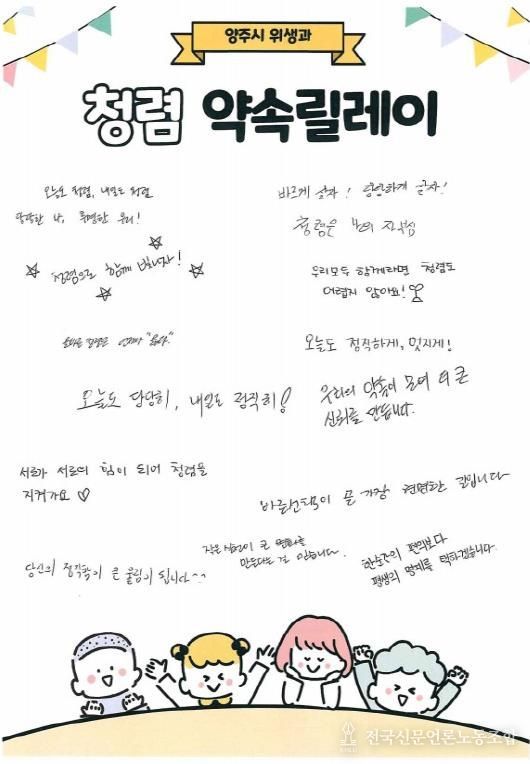 양주시 위생과
청렴 약속릴레이
오늘도 청렴, 내일도 청렴
당당한 나, 투명한 우리!
바르게 살자! 당당하게 살자!
청렴은 나의 자부심
청렴으로 함께 빛나자!
우리모두 함께라면 청렴도
어렵지 않아요!
언제나 "옳다."
오늘도 정직하게, 멋지게!
오늘도 당당히, 내일도 정직히!
우리의 약속이 모여 더 큰
신뢰를 만듭니다.
서로가 서로의 힘이 되어 청렴을
지켜가요 ♡
바른선택이 곧 가장 현명한 길입니다
작은 실천이 큰 변화를
만든다는 걸 믿습니다.
당신의 정직함이 큰 울림이 됩니다^^
한순간의 편의보다
평생의 명예를 택하겠습니다.
전국신문언론노동조합